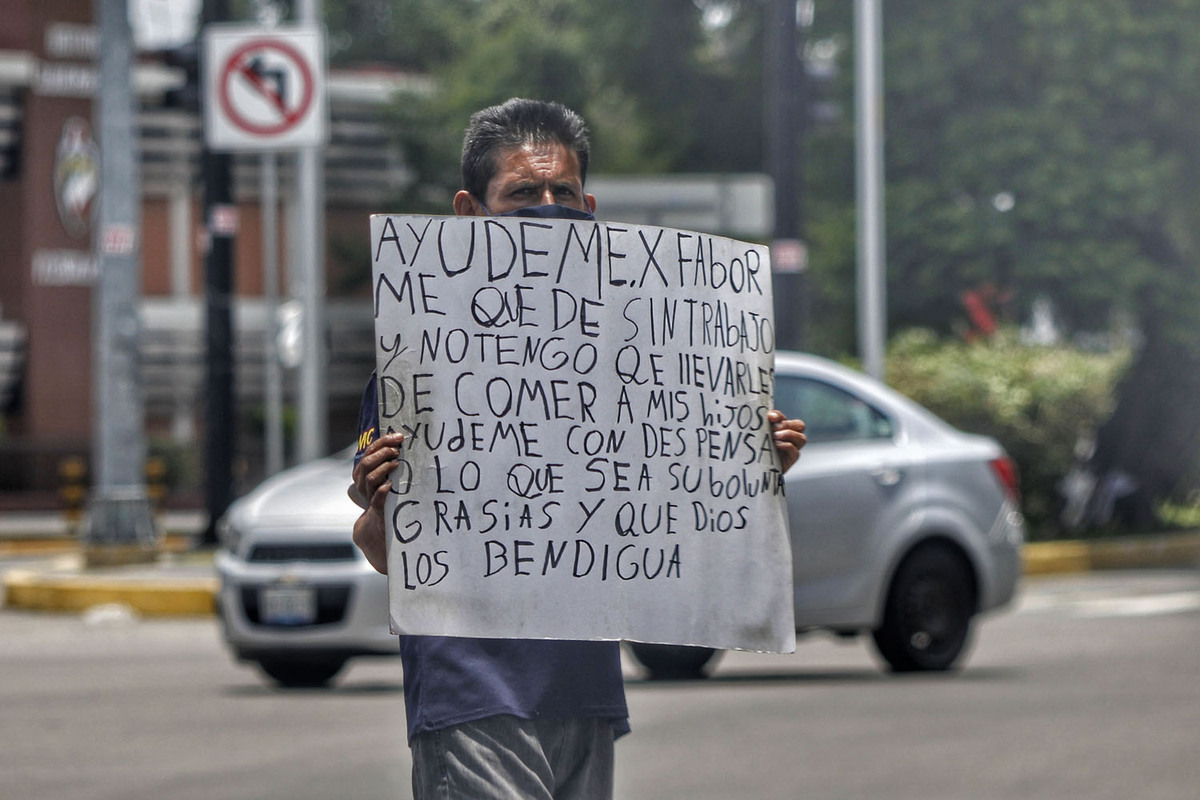 AYUDEME.X FAbOR
ME QUE DE SINTRAbAJO
y NOTENGO QE llEVARLES
DE COMER A MIS hiJOS
AYUdEME CON DESPENSA
O LO QUE SEA SUbolUNTA
GRASiAS Y QUE Dios
LOS BENDIGUA